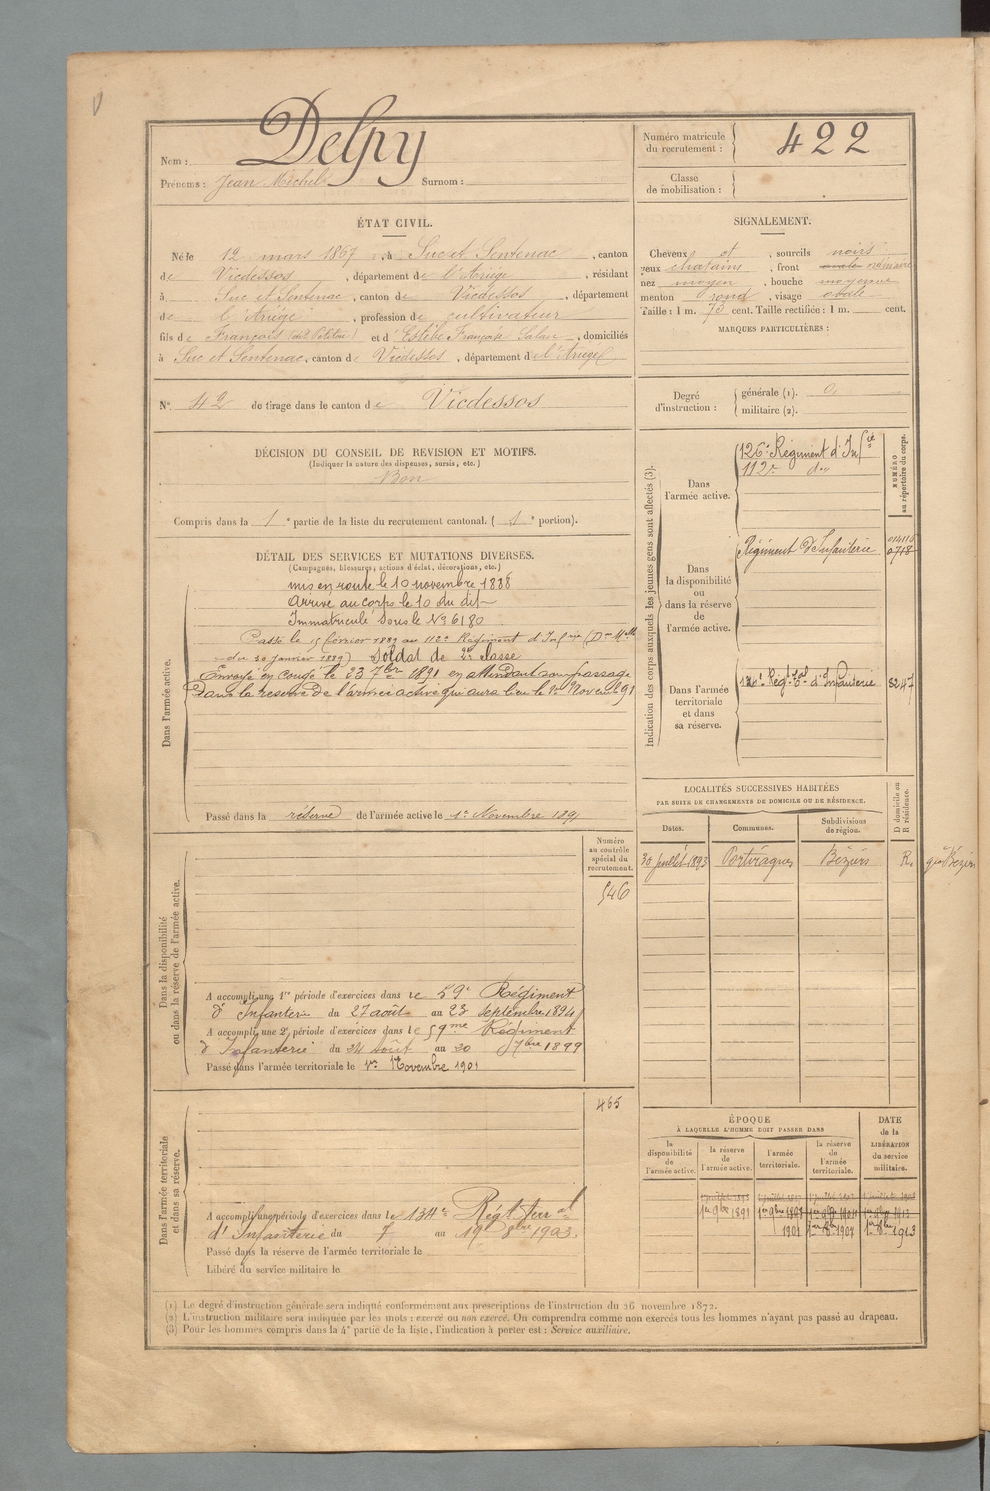 Nom : Delpy
Prénoms : Jean Michel Surnom :
Numéro matricule du recrutement : 422
Classe de mobilisation :
ÉTAT CIVIL.
Né le 12 mars 1867, à Suc et Sentenac, canton
de Vicdessos, département de l'Ariége, résidant
à Suc et Sentenac, canton de Vicdessos, département
de l'Ariége, profession de cultivateur
fils de François (dit Politou) et d'Estèbe Française Salau, domiciliés
à Suc et Sentenac, canton de Vicdessos, département d el'Ariege
N° 42 de tirage dans le canton de Vicdessos
SIGNALEMENT.
Cheveux et, sourcils noirs
yeux chatains, front ovale ordinaire
nez moyen, bouche moyenne
menton rond, visage ovale
Taille : 1 m. 73 cent. Taille rectifiée : 1 m. cent.
MARQUES PARTICULIÈRES :
Degré d'instruction :
générale (1).
militaire (2).
DÉCISION DU CONSEIL DE REVISION ET MOTIFS.
(Indiquer la nature des dispenses, sursis, etc.)
Bon
Compris dans la 1e partie de la liste du recrutement cantonal. ( 1e portion).
DÉTAIL DES SERVICES ET MUTATIONS DIVERSES.
(Campagnes, blessures, actions d'éclat, décorations, etc.)
Dans l'armée active.
mis en route le 10 novembre 1888
Arrivé au corps le 10 du dit
Immatriculé sous le N° 6180
Passé le 15 février 1889 au 112e Régiment d'Infrie (Don Mlle
du 30 janvier 1889) Soldat de 2e classe
Envoyé en congé le 23 7bre 1891 en attendant son passage
Dans la réserve de l'armée active qui aura lieu le 1er Novembre 91
Passé dans la réserve de l'armée active le 1er Novembre 1891
Indication des corps auxquels les jeunes gens sont affectés (3).
NUMÉRO au répertoire du corps.
Dans l'armée active.
126e Régiment d'Infie
112e do
Dans la disponibilité ou dans la réserve de l'armée active.
Régiment d'Infanterie
Dans l'armée territoriale et dans sa réserve.
Régt Tal d'Infanterie 8247
LOCALITÉS SUCCESSIVES HABITÉES
PAR SUITE DE CHANGEMENTS DE DOMICILE OU DE RÉSIDENCE.
Dates. Communes. Subdivisions de région. D domicile ou R résidence.
30 juillet 1893 Portiragnes Béziers R.
Dans la disponibilité ou dans la réserve de l'armée active.
Numéro au contrôle spécial du recrutement.
546
A accompli une 1re période d'exercices dans le 59e Régiment
d'Infanterie du 27 août au 23 Septembre 1894
A accompli une 2e période d'exercices dans le 59me Régiment
d'Infanterie du 24 août au 20 7bre 1899
Passé dans l'armée territoriale le 1er Novembre 1901
Dans l'armée territoriale et dans sa réserve.
465
A accompli une période d'exercices dans le 134e Régt terral
d'Infanterie du 7 au 19 8bre 1903.
Passé dans la réserve de l'armée territoriale le
Libéré du service militaire le
ÉPOQUE
À LAQUELLE L'HOMME DOIT PASSER DANS
la disponibilité de l'armée active.
la réserve de l'armée active.
l'armée territoriale.
la réserve de l'armée territoriale.
DATE de la LIBÉRATION du service militaire.
1er 9bre 1891 1er 9bre 1898
1901 1er 8bre 1907 1er 8bre 1913
(1) Le degré d'instruction générale sera indiqué conformément aux prescriptions de l'instruction du 26 novembre 1872.
(2) L'instruction militaire sera indiquée par les mots : exercé ou non exercé. On comprendra comme non exercés tous les hommes n'ayant pas passé au drapeau.
(3) Pour les hommes compris dans la 4e partie de la liste, l'indication à porter est : Service auxiliaire.